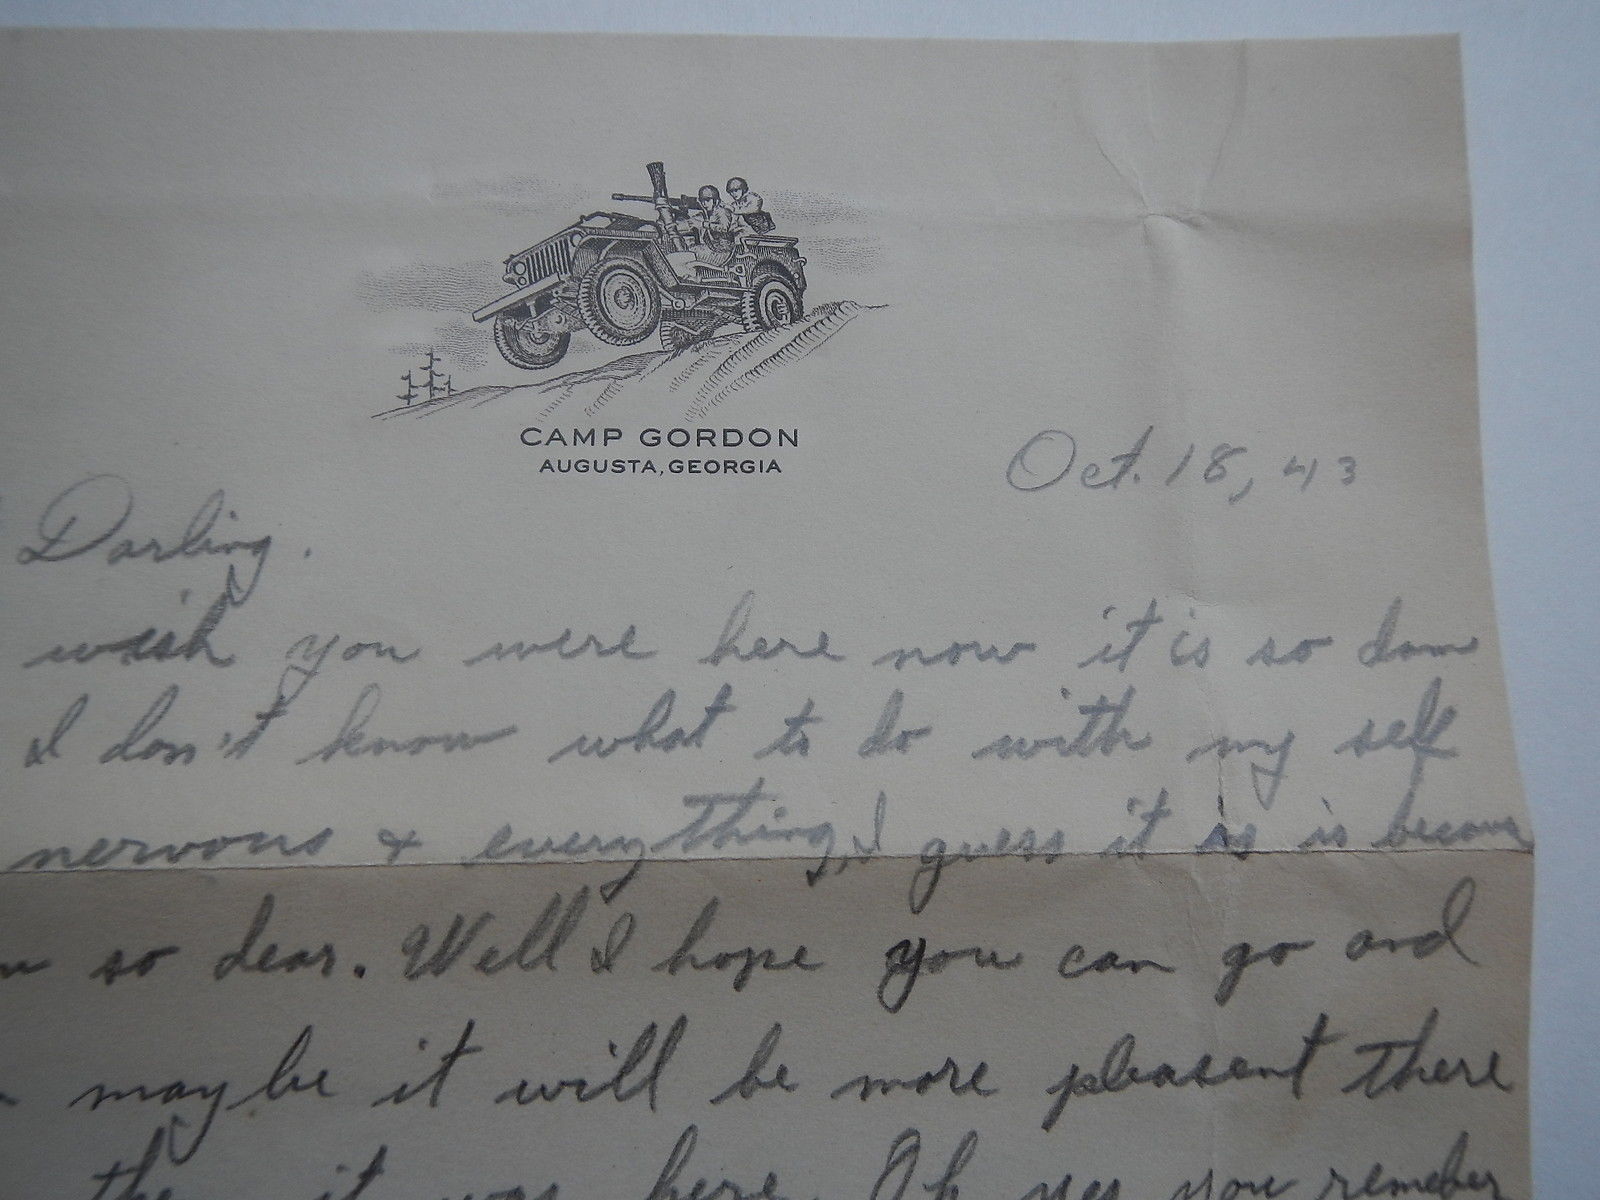 CAMP GORDON
AUGUSTA, GEORGIA
Oct. 18, 43
Darling.
wish you were here now it is so dam
I don't know what to do with my self
nervous & everything, I guess it is is becaus
so dear. Well I hope you can go and
maybe it will be more pleasent there
the it was here. Oh yes you remeber